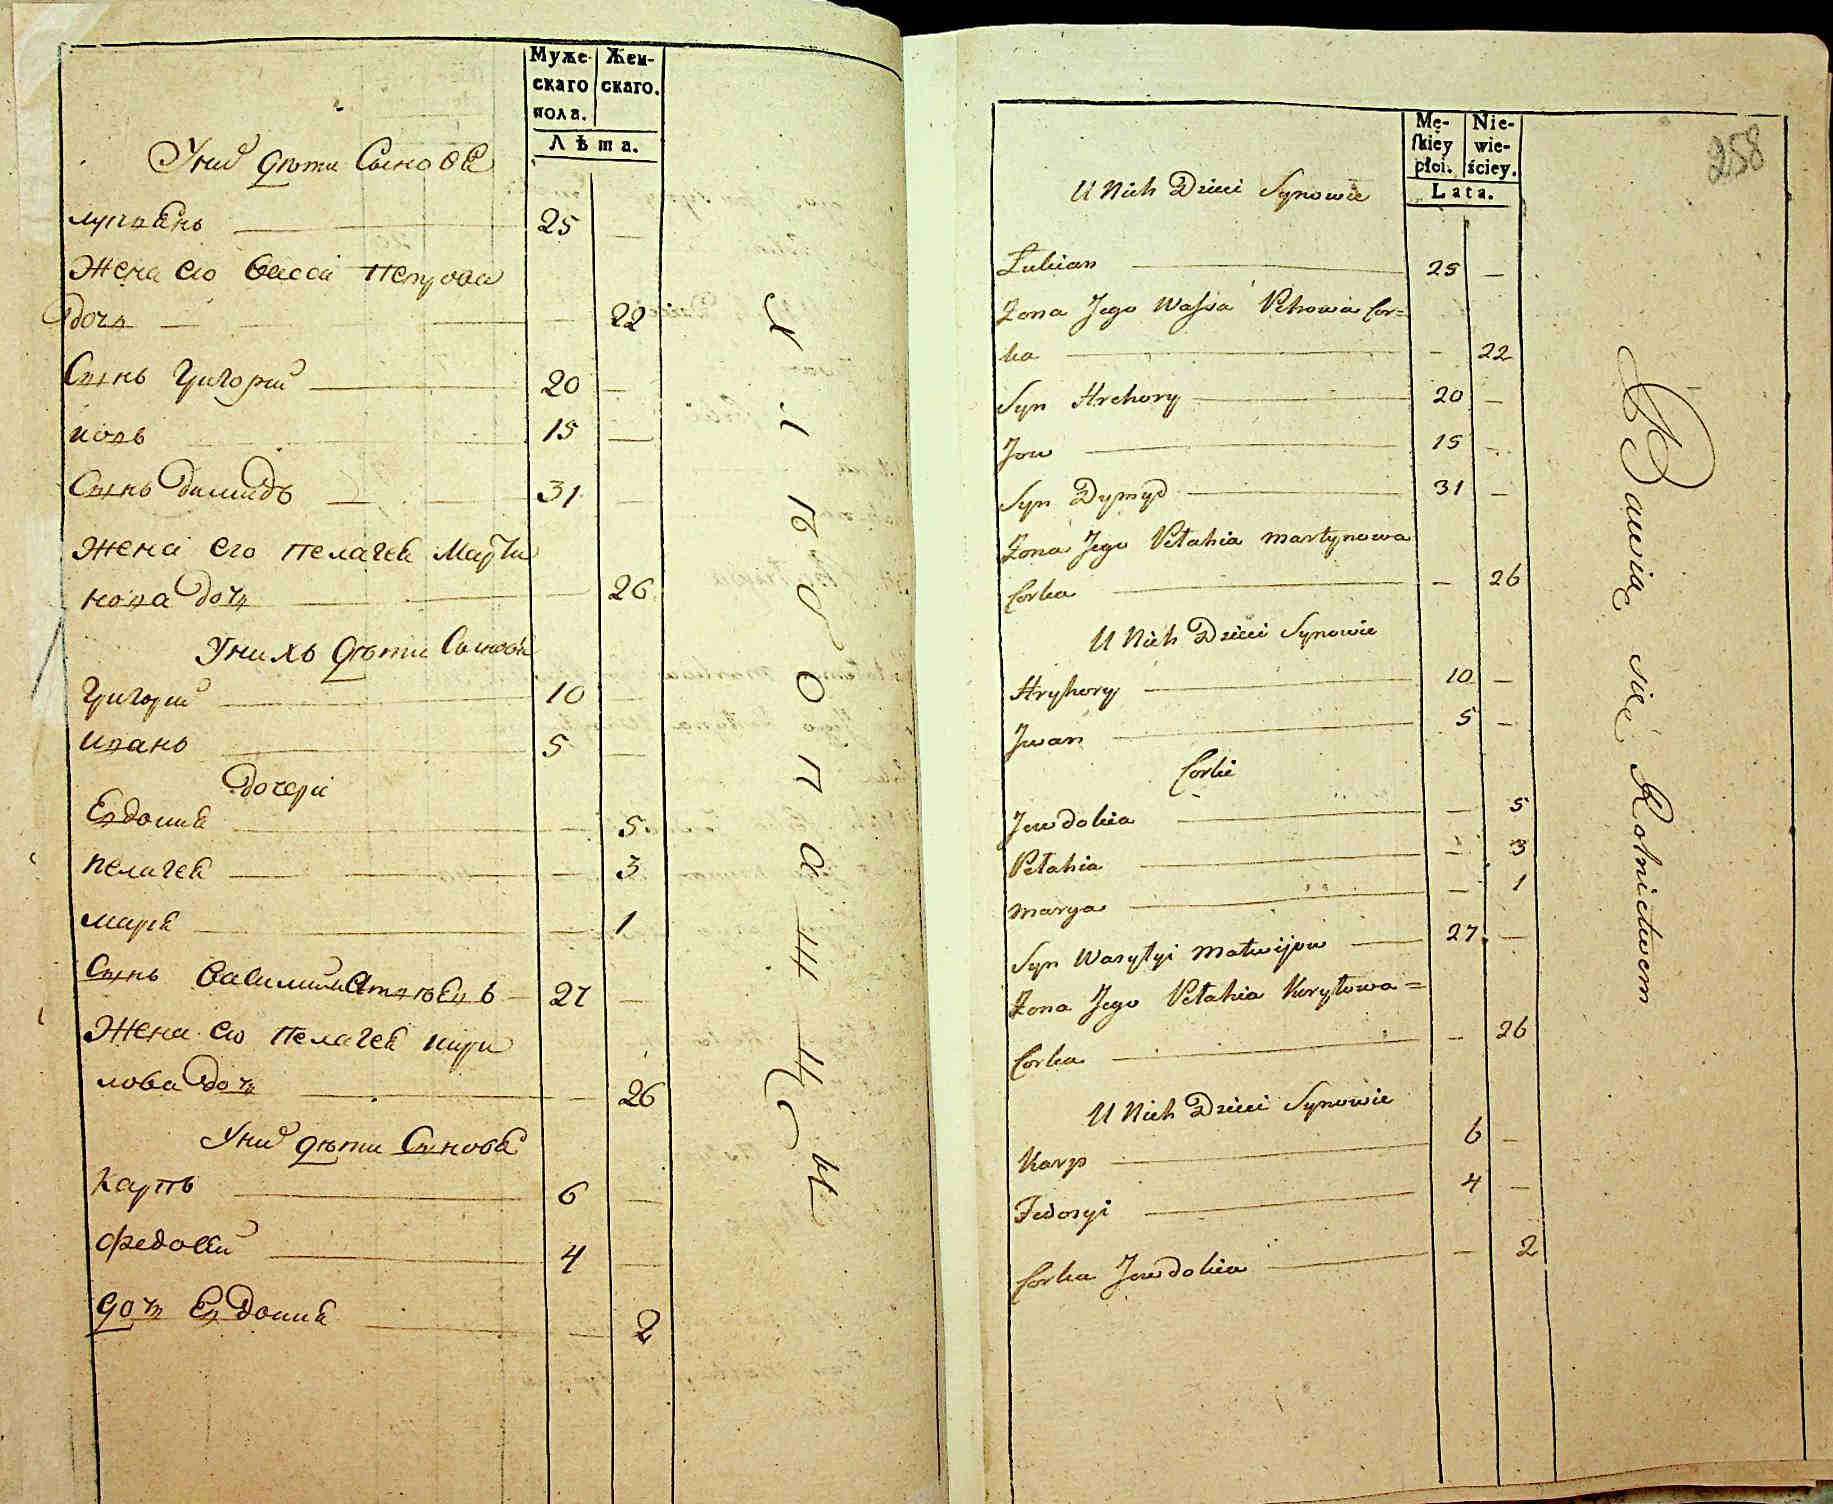 Муже-
скаго
пола.
Жен-
скаго.
Лѣта.
Униⷯ дѣти Сынове
Лукианъ 25
Жена его Васса Петрова
дочь 22
Сынъ Григорий 20
Иовъ 15
Сынъ Димидъ 31
Жена его Пелагея Марти
нова дочь 26
Унихъ дѣти Сынове
Григорий 10
Иванъ 5
дочери
Евдокия 5
Пелагея 3
Марья 1
Сынъ Василий Матвѣевъ 27
Жена его Пелагея Кири
лова дочь 26
Униⷯ дѣти Сынове
Карпъ 6
Федосѣй 4
дочь Евдокия 2
Mę-
skiey
płci.
Nie-
wie-
ściey.
Lata.
258
U Nich Dzieci Synowie
Łukian 25
Żona Jego Wassa Petrowa Cor=
ka 22
Syn Hrehory 20
Jow 15
Syn Dymyd 31
Żona Jego Pełahia Martynowa
Corka 26
U Nich Dzieci Synowie
Hryhory 10
Jwan 5
Corki
Jewdokia 5
Pełahia 3
Marya 1
Syn Wasylyi Matwijow 27
Żona Jego Pełahia Kyryłowa=
Corka 26
U Nich Dzieci Synowie
Karp 6
Fedosyi 4
Corka Jewdokia 2
Bawią się Rolnictwem